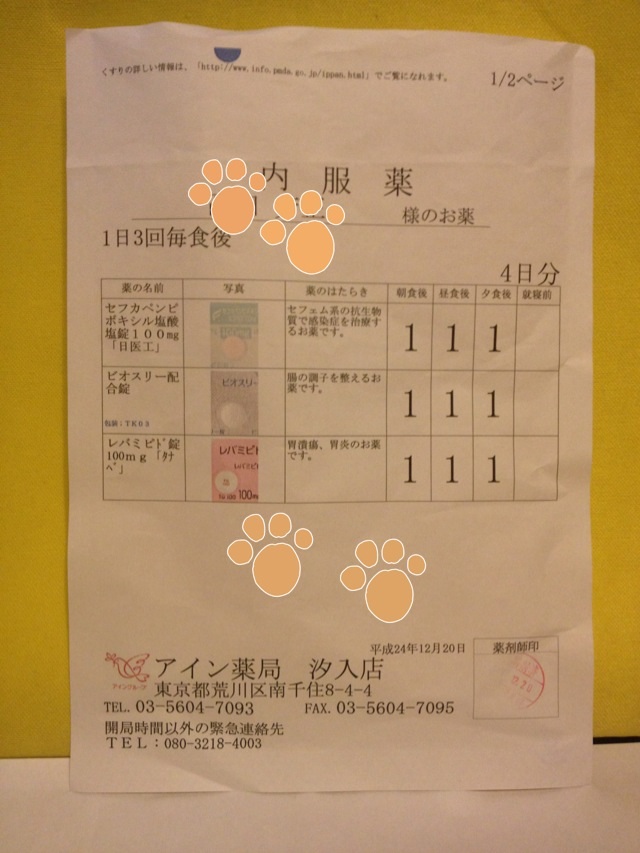 くすりの詳しい情報は、「http://www.info.pmda.go.jp/ippan.html」でご覧になれます。
1/2ページ
内 服 薬
様のお薬
1日3回毎食後
4日分
薬の名前 写真 薬のはたらき 朝食後 昼食後 夕食後 就寝前
セフカペンピ
ボキシル塩酸
塩錠１００mg
「日医工」
セフェム系の抗生物
質で感染症を治療す
るお薬です。
1 1 1
ビオスリー配
合錠
包装：TK03
ビオスリー
腸の調子を整えるお
薬です。
1 1 1
レバミピド錠
100ｍｇ「タナ
ベ」
レバミピド
レバミピド
100mg
胃潰瘍、胃炎のお薬
です。
1 1 1
平成24年12月20日
薬剤師印
アイングループ
アイン薬局 汐入店
東京都荒川区南千住8-4-4
TEL. 03-5604-7093 FAX. 03-5604-7095
開局時間以外の緊急連絡先
ＴＥＬ：080-3218-4003